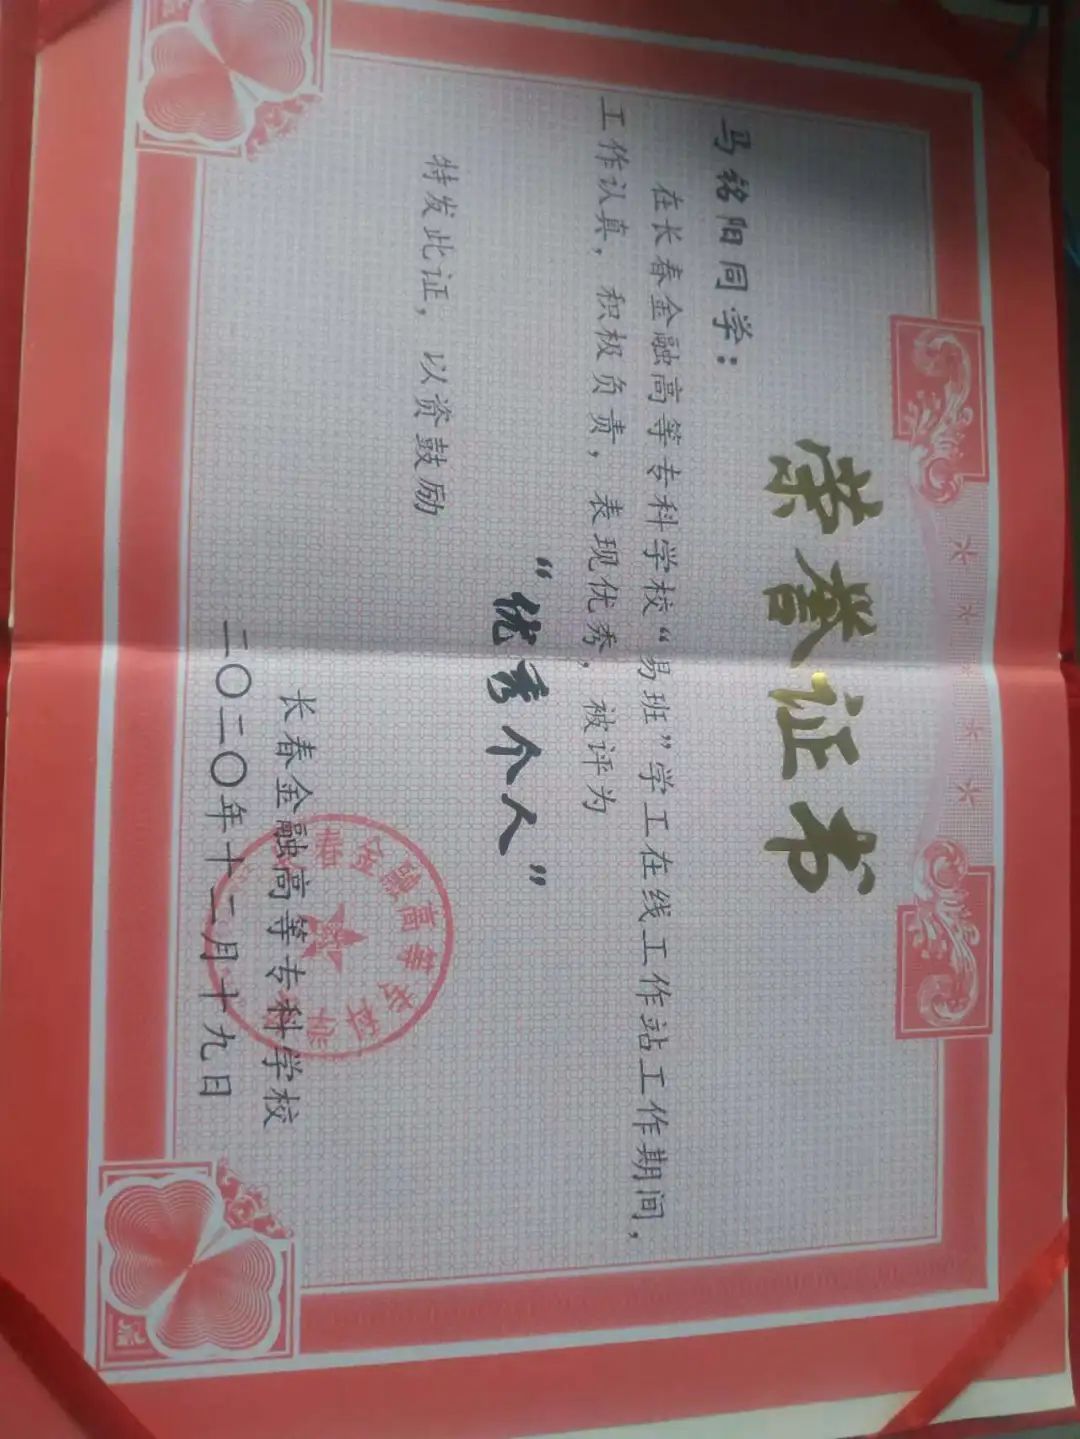 荣誉证书
马铭阳同学：
在长春金融高等专科学校“易班”学工在线工作站工作期间，
工作认真，积极负责，表现优秀，被评为
“优秀个人”
特发此证，以资鼓励
长春金融高等专科学校
二〇二〇年十二月十九日